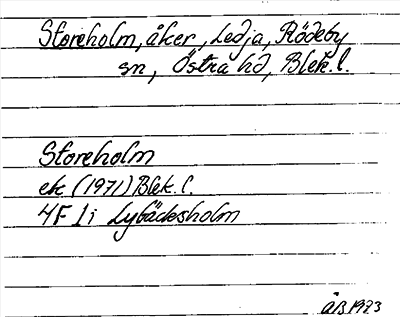 Storeholm, åker, Ledja, Rödeby
sn, Östra hd, Blek. l.
Storeholm
ek (1971) Blek. l.
4F 1i Lybäcksholm
ÅB 1973